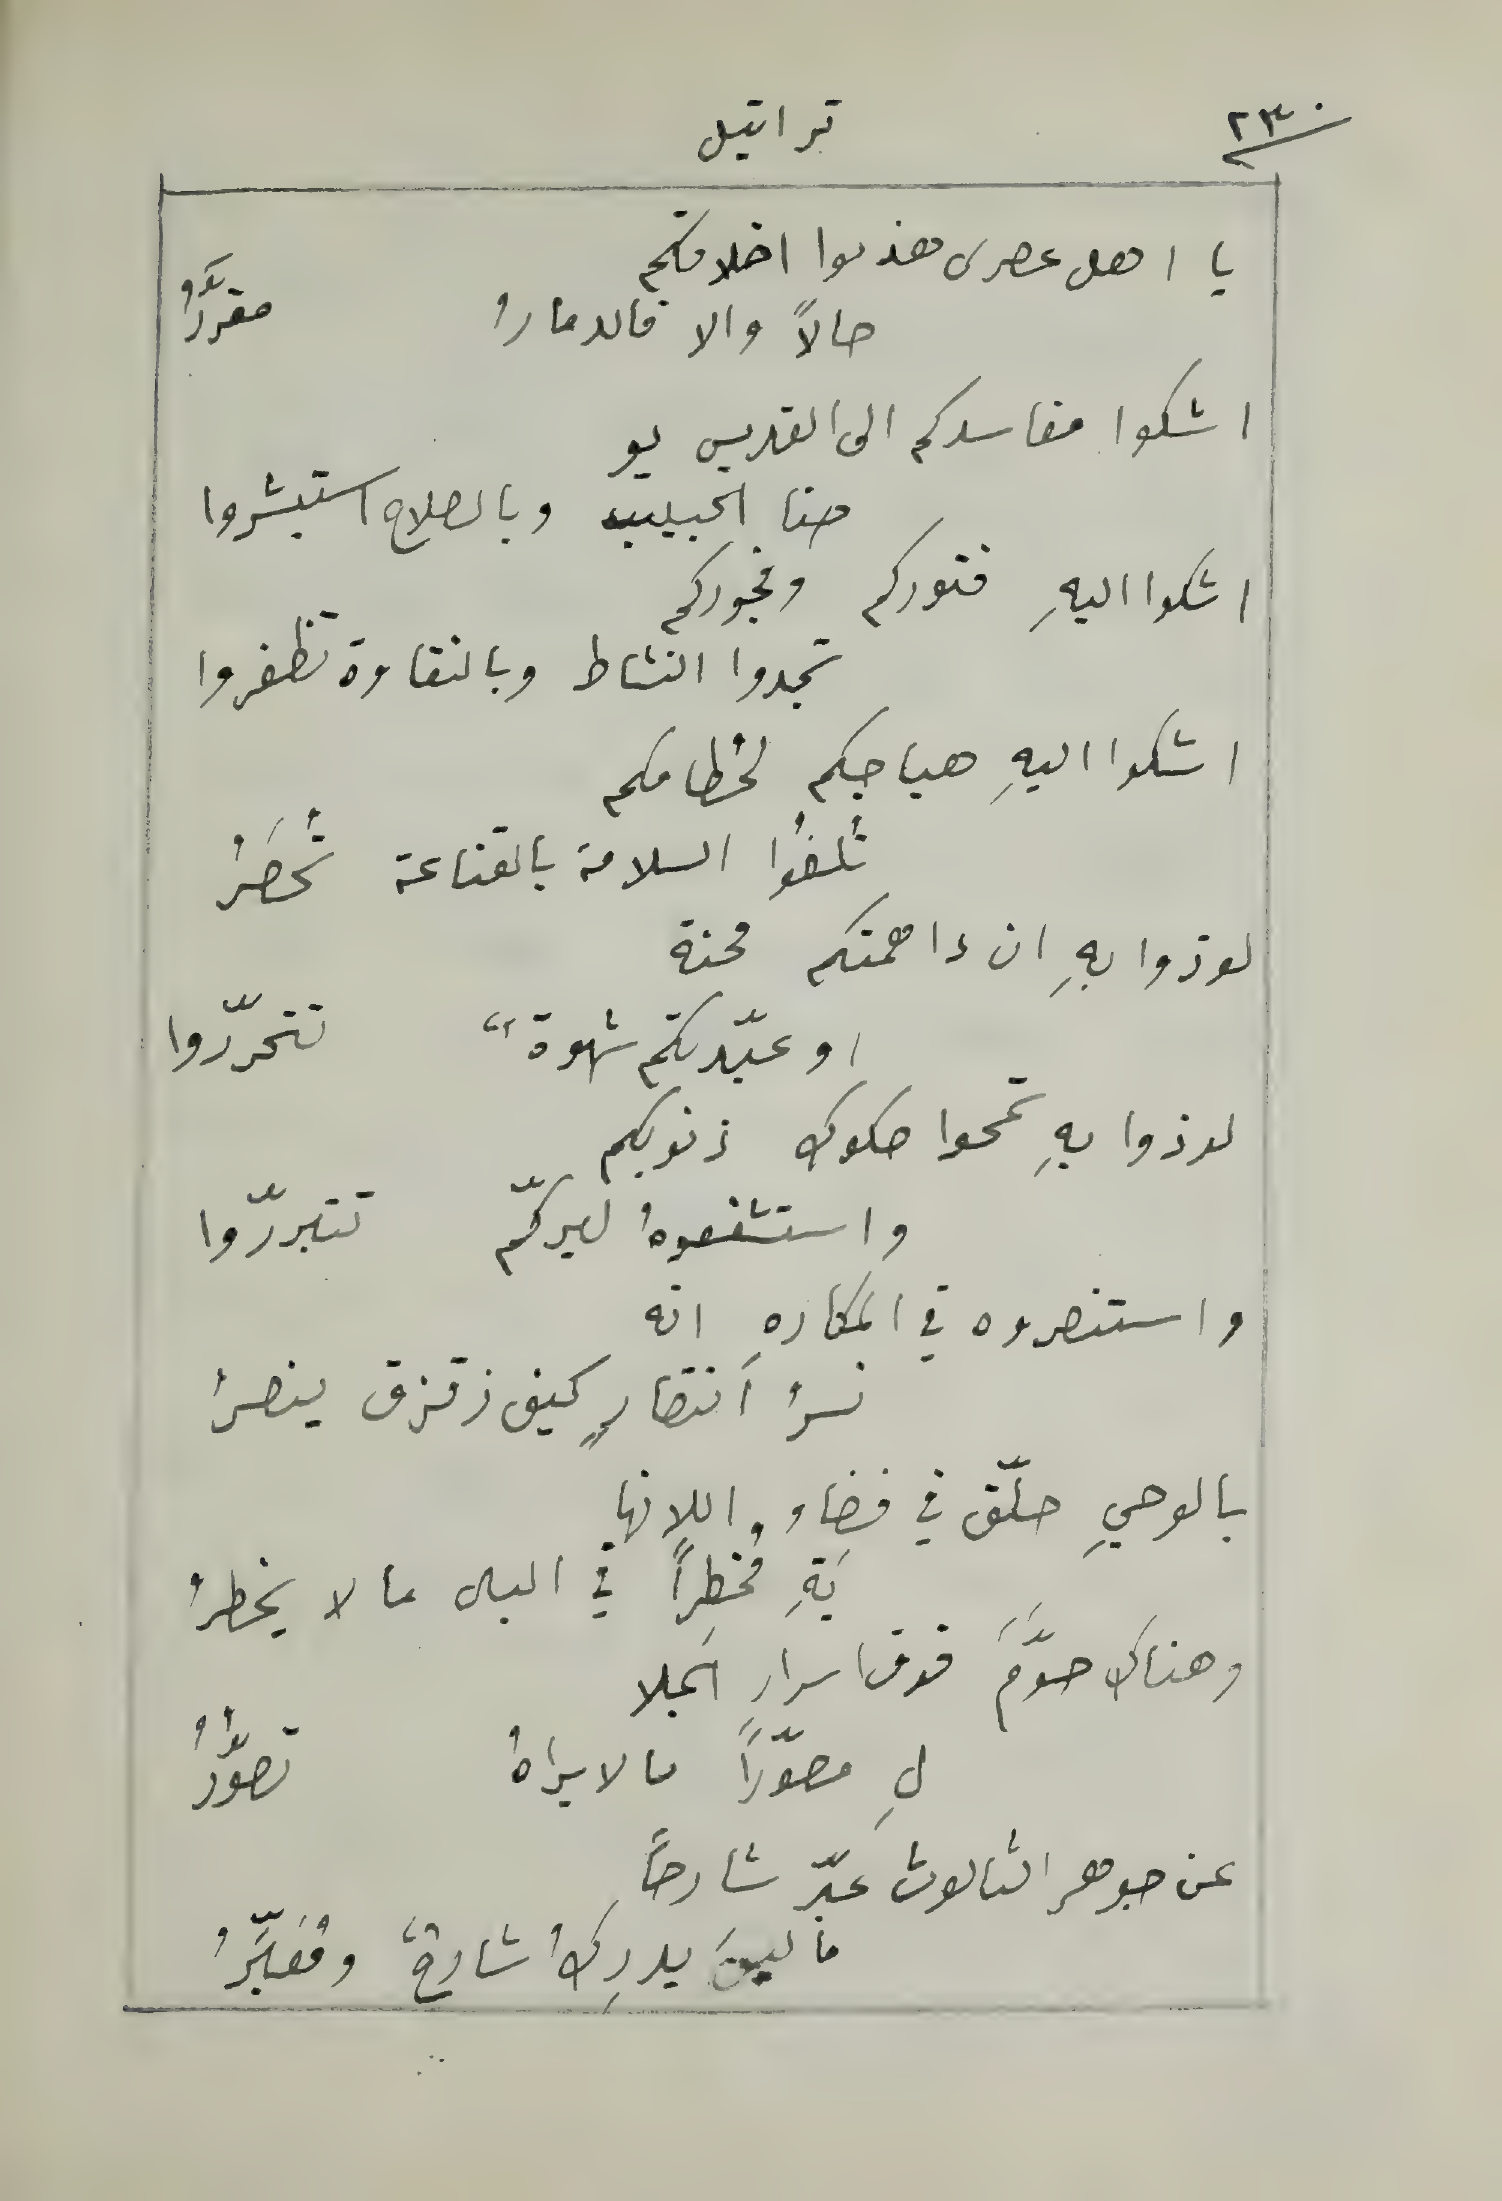 ٢٣٠
تراتيل
يا اهل عصرى هذبوا اخلاقكم
حالاً والا فالدمارُ مقرَّرُ
اشكوا مفاسدكم الى القديس يو
حنا الحبيب وبالصلاح استبشروا
اشكوا اليهِ فتوركم وفجوركم
تجدوا النشاط وبالنقاوة تظفروا
اشكوا اليهِ هياجكم لحُطامكم
تُلفُوا السلامة بالقناعة تُحصَرُ
لوذوا بهِ ان داهمتكم محنة
او عبّدتكم شهوةٌ تتحرّروا
لوذوا بهِ تمحوا صكوك ذنوبكم
واستشفعوهُ لبركّم تتبررّوا
واستنصروه في المكارهِ انه
نسرُ انتصارٍ كيف زقزق ينصرُ
بالوحيِ حلّق في فضاءِ اللانها
يَةِ مُخطِراً في البال ما لا يخطرُ
وهناك حوَّمَ فوق اسرارِ الجَلا
لِ مصوّرِاً ما لا يراهُ تصوُّرُ
عن جوهر الثالوث عبّر شارحاً
ما ليسَ يدركُ شارحٌ ومُعَبِّرُ